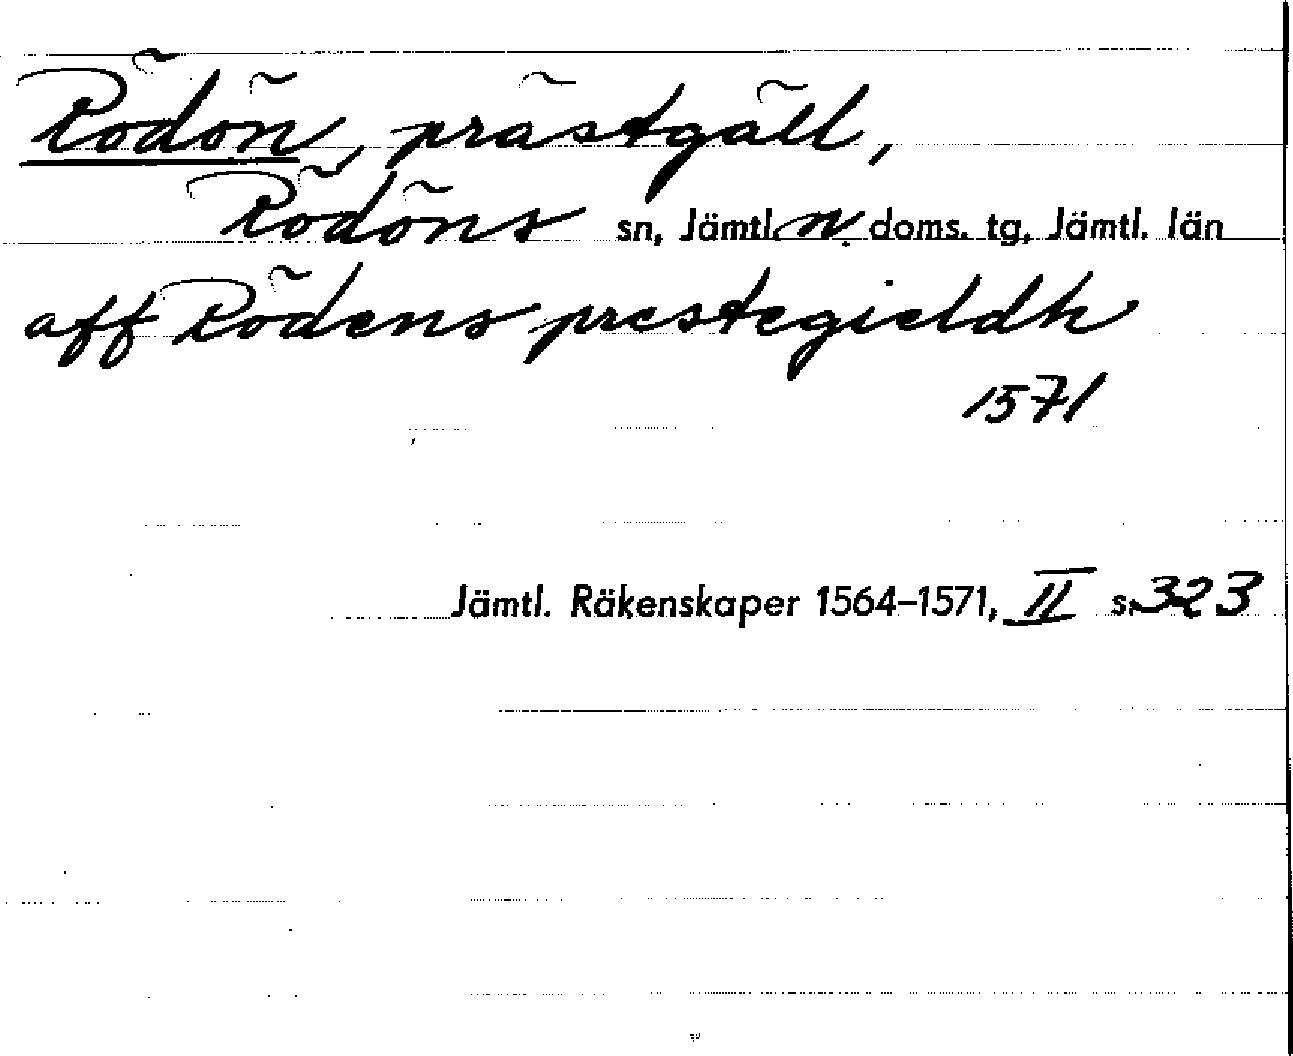 Rödön, prästgäll,
Rödöns sn, Jämtl. n. doms. tg, Jämtl. län
aff Rödens prestegieldh
1571
Jämtl. Räkenskaper 1564–1571, II s. 323